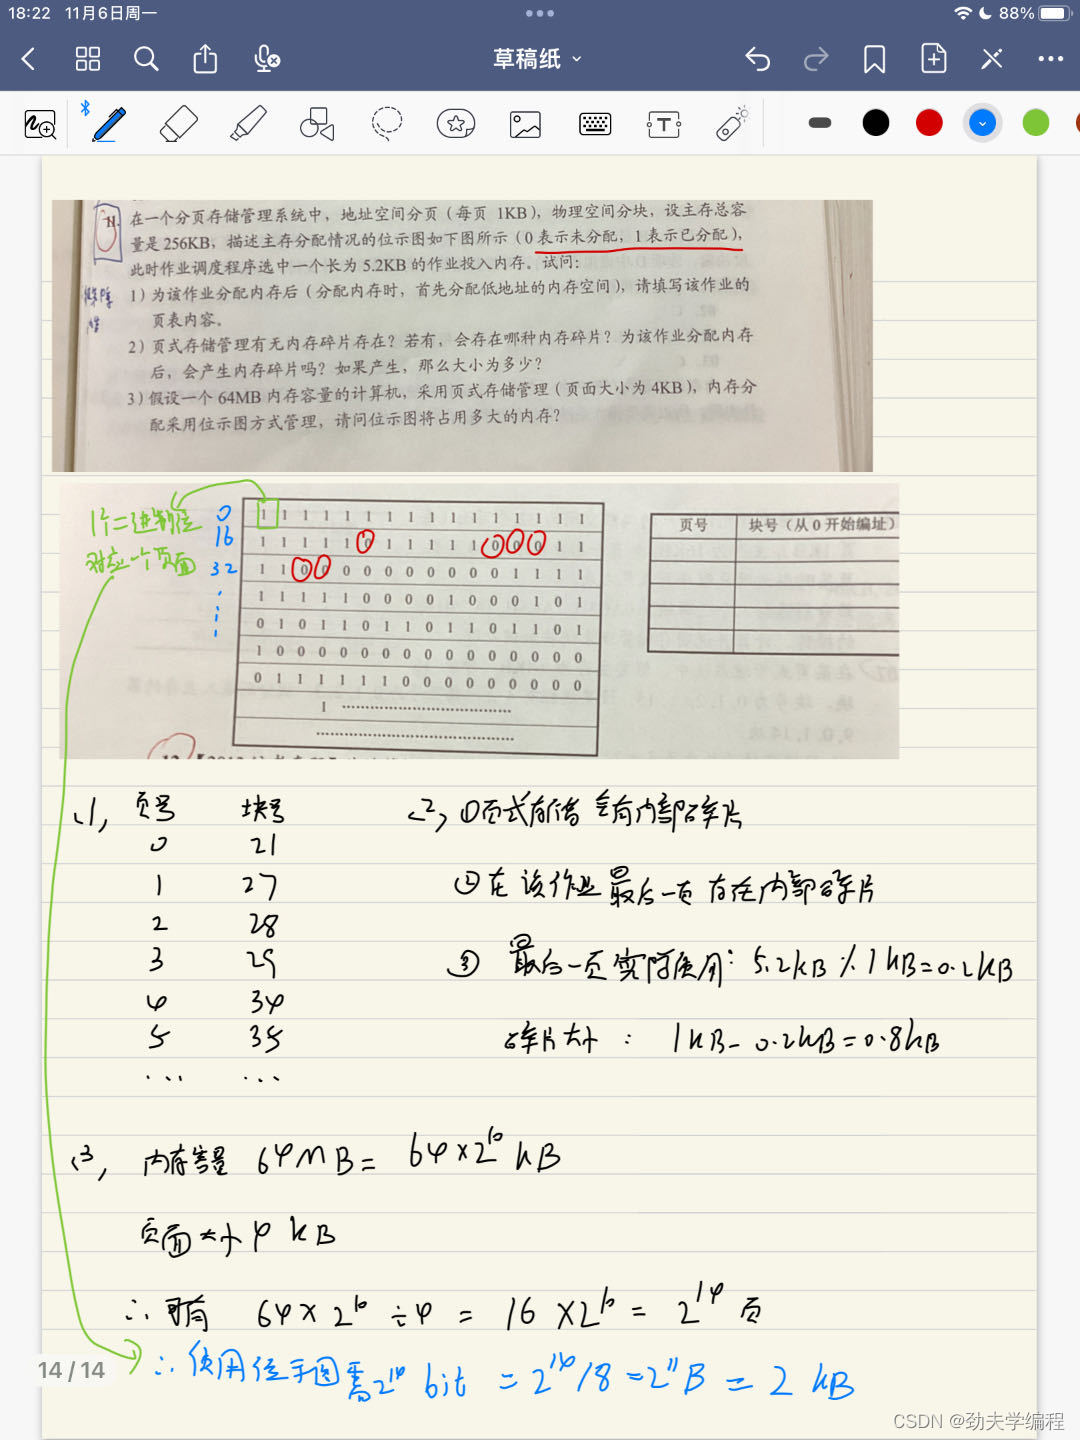 18:22 11月6日周一
88%
草稿纸
11. 在一个分页存储管理系统中，地址空间分页（每页 1KB），物理空间分块，设主存总容
量是 256KB，描述主存分配情况的位示图如下图所示（0 表示未分配，1 表示已分配），
此时作业调度程序选中一个长为 5.2KB 的作业投入内存。试问：
1）为该作业分配内存后（分配内存时，首先分配低地址的内存空间），请填写该作业的
页表内容。
2）页式存储管理有无内存碎片存在？若有，会存在哪种内存碎片？为该作业分配内存
后，会产生内存碎片吗？如果产生，那么大小为多少？
3）假设一个 64MB 内存容量的计算机，采用页式存储管理（页面大小为 4KB），内存分
配采用位示图方式管理，请问位示图将占用多大的内存？
1个二进制位
对应一个页面
0 1 1 1 1 1 1 1 1 1 1 1 1 1 1 1 1
16 1 1 1 1 1 0 1 1 1 1 1 0 0 0 1 1
32 1 1 0 0 0 0 0 0 0 0 0 0 1 1 1 1
1 1 1 1 1 0 0 0 0 1 0 0 0 1 0 1
0 1 0 1 1 0 1 1 0 1 1 0 1 1 0 1
1 0 0 0 0 0 0 0 0 0 0 0 0 0 0 0
0 1 1 1 1 1 1 0 0 0 0 0 0 0 0 0
1 ……………………
……………………
页号 块号（从 0 开始编址）
(1) 页号 块号
0 21
1 27
2 28
3 29
4 34
5 35
... ...
(2) ①页式存储会有内部碎片
②在该作业最后一页存在内部碎片
③ 最后一页实际使用：5.2KB % 1KB=0.2KB
碎片大小： 1KB-0.2KB=0.8KB
(3) 内存容量 64MB= 64×2^10 KB
页面大小 4KB
∴ 可有 64×2^10 ÷4 = 16×2^10 = 2^14 页
∴ 使用位示图需2^14 bit = 2^14/8 =2^11 B = 2 KB
14 / 14
CSDN @劲夫学编程